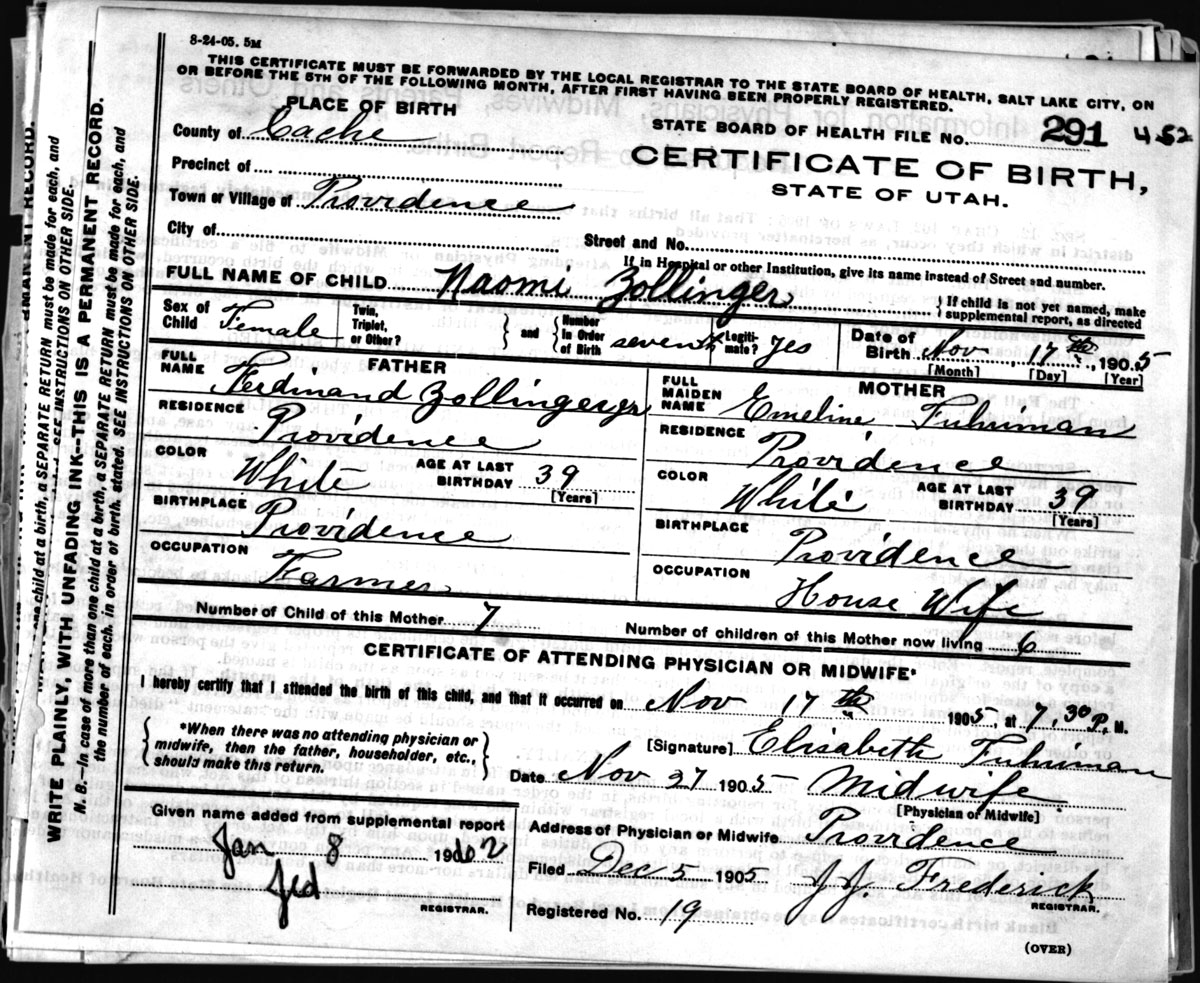 8-24-05. 5M
THIS CERTIFICATE MUST BE FORWARDED BY THE LOCAL REGISTRAR TO THE STATE BOARD OF HEALTH, SALT LAKE CITY, ON
OR BEFORE THE 5TH OF THE FOLLOWING MONTH, AFTER FIRST HAVING BEEN PROPERLY REGISTERED.
PLACE OF BIRTH
County of Cache
Precinct of
Town or Village of Providence
City of
STATE BOARD OF HEALTH FILE No. 291 452
CERTIFICATE OF BIRTH,
STATE OF UTAH.
Street and No.
If in Hospital or other Institution, give its name instead of Street and number.
FULL NAME OF CHILD Naomi Zollinger
If child is not yet named, make
supplemental report, as directed
Sex of Child Female
Twin, Triplet, or Other?
and
Number In Order of Birth seventh
Legiti-mate? yes
Date of Birth Nov. 17th, 1905
[Month] [Day] [Year]
FATHER
FULL NAME Ferdinand Zollinger
RESIDENCE Providence
COLOR White
AGE AT LAST BIRTHDAY 39
[Years]
BIRTHPLACE Providence
OCCUPATION Farmer
MOTHER
FULL MAIDEN NAME Emeline Fuhriman
RESIDENCE Providence
COLOR White
AGE AT LAST BIRTHDAY 39
[Years]
BIRTHPLACE Providence
OCCUPATION House Wife
Number of Child of this Mother 7
Number of children of this Mother now living 6
CERTIFICATE OF ATTENDING PHYSICIAN OR MIDWIFE*
I hereby certify that I attended the birth of this child, and that it occurred on Nov 17th 1905, at 7,30 P. M.
*When there was no attending physician or
midwife, then the father, householder, etc.,
should make this return.
[Signature] Elisabeth Fuhriman
Date Nov 27 1905 Midwife
[Physician or Midwife]
Given name added from supplemental report
Jan 8
REGISTRAR.
Address of Physician or Midwife Providence
Filed Dec 5 1905 J.J. Frederick
REGISTRAR.
Registered No. 19
(OVER)
WRITE PLAINLY, WITH UNFADING INK--THIS IS A PERMANENT RECORD.
N. B.--In case of more than one child at a birth, a SEPARATE RETURN must be made for each, and
the number of each, in order of birth, stated. SEE INSTRUCTIONS ON OTHER SIDE.